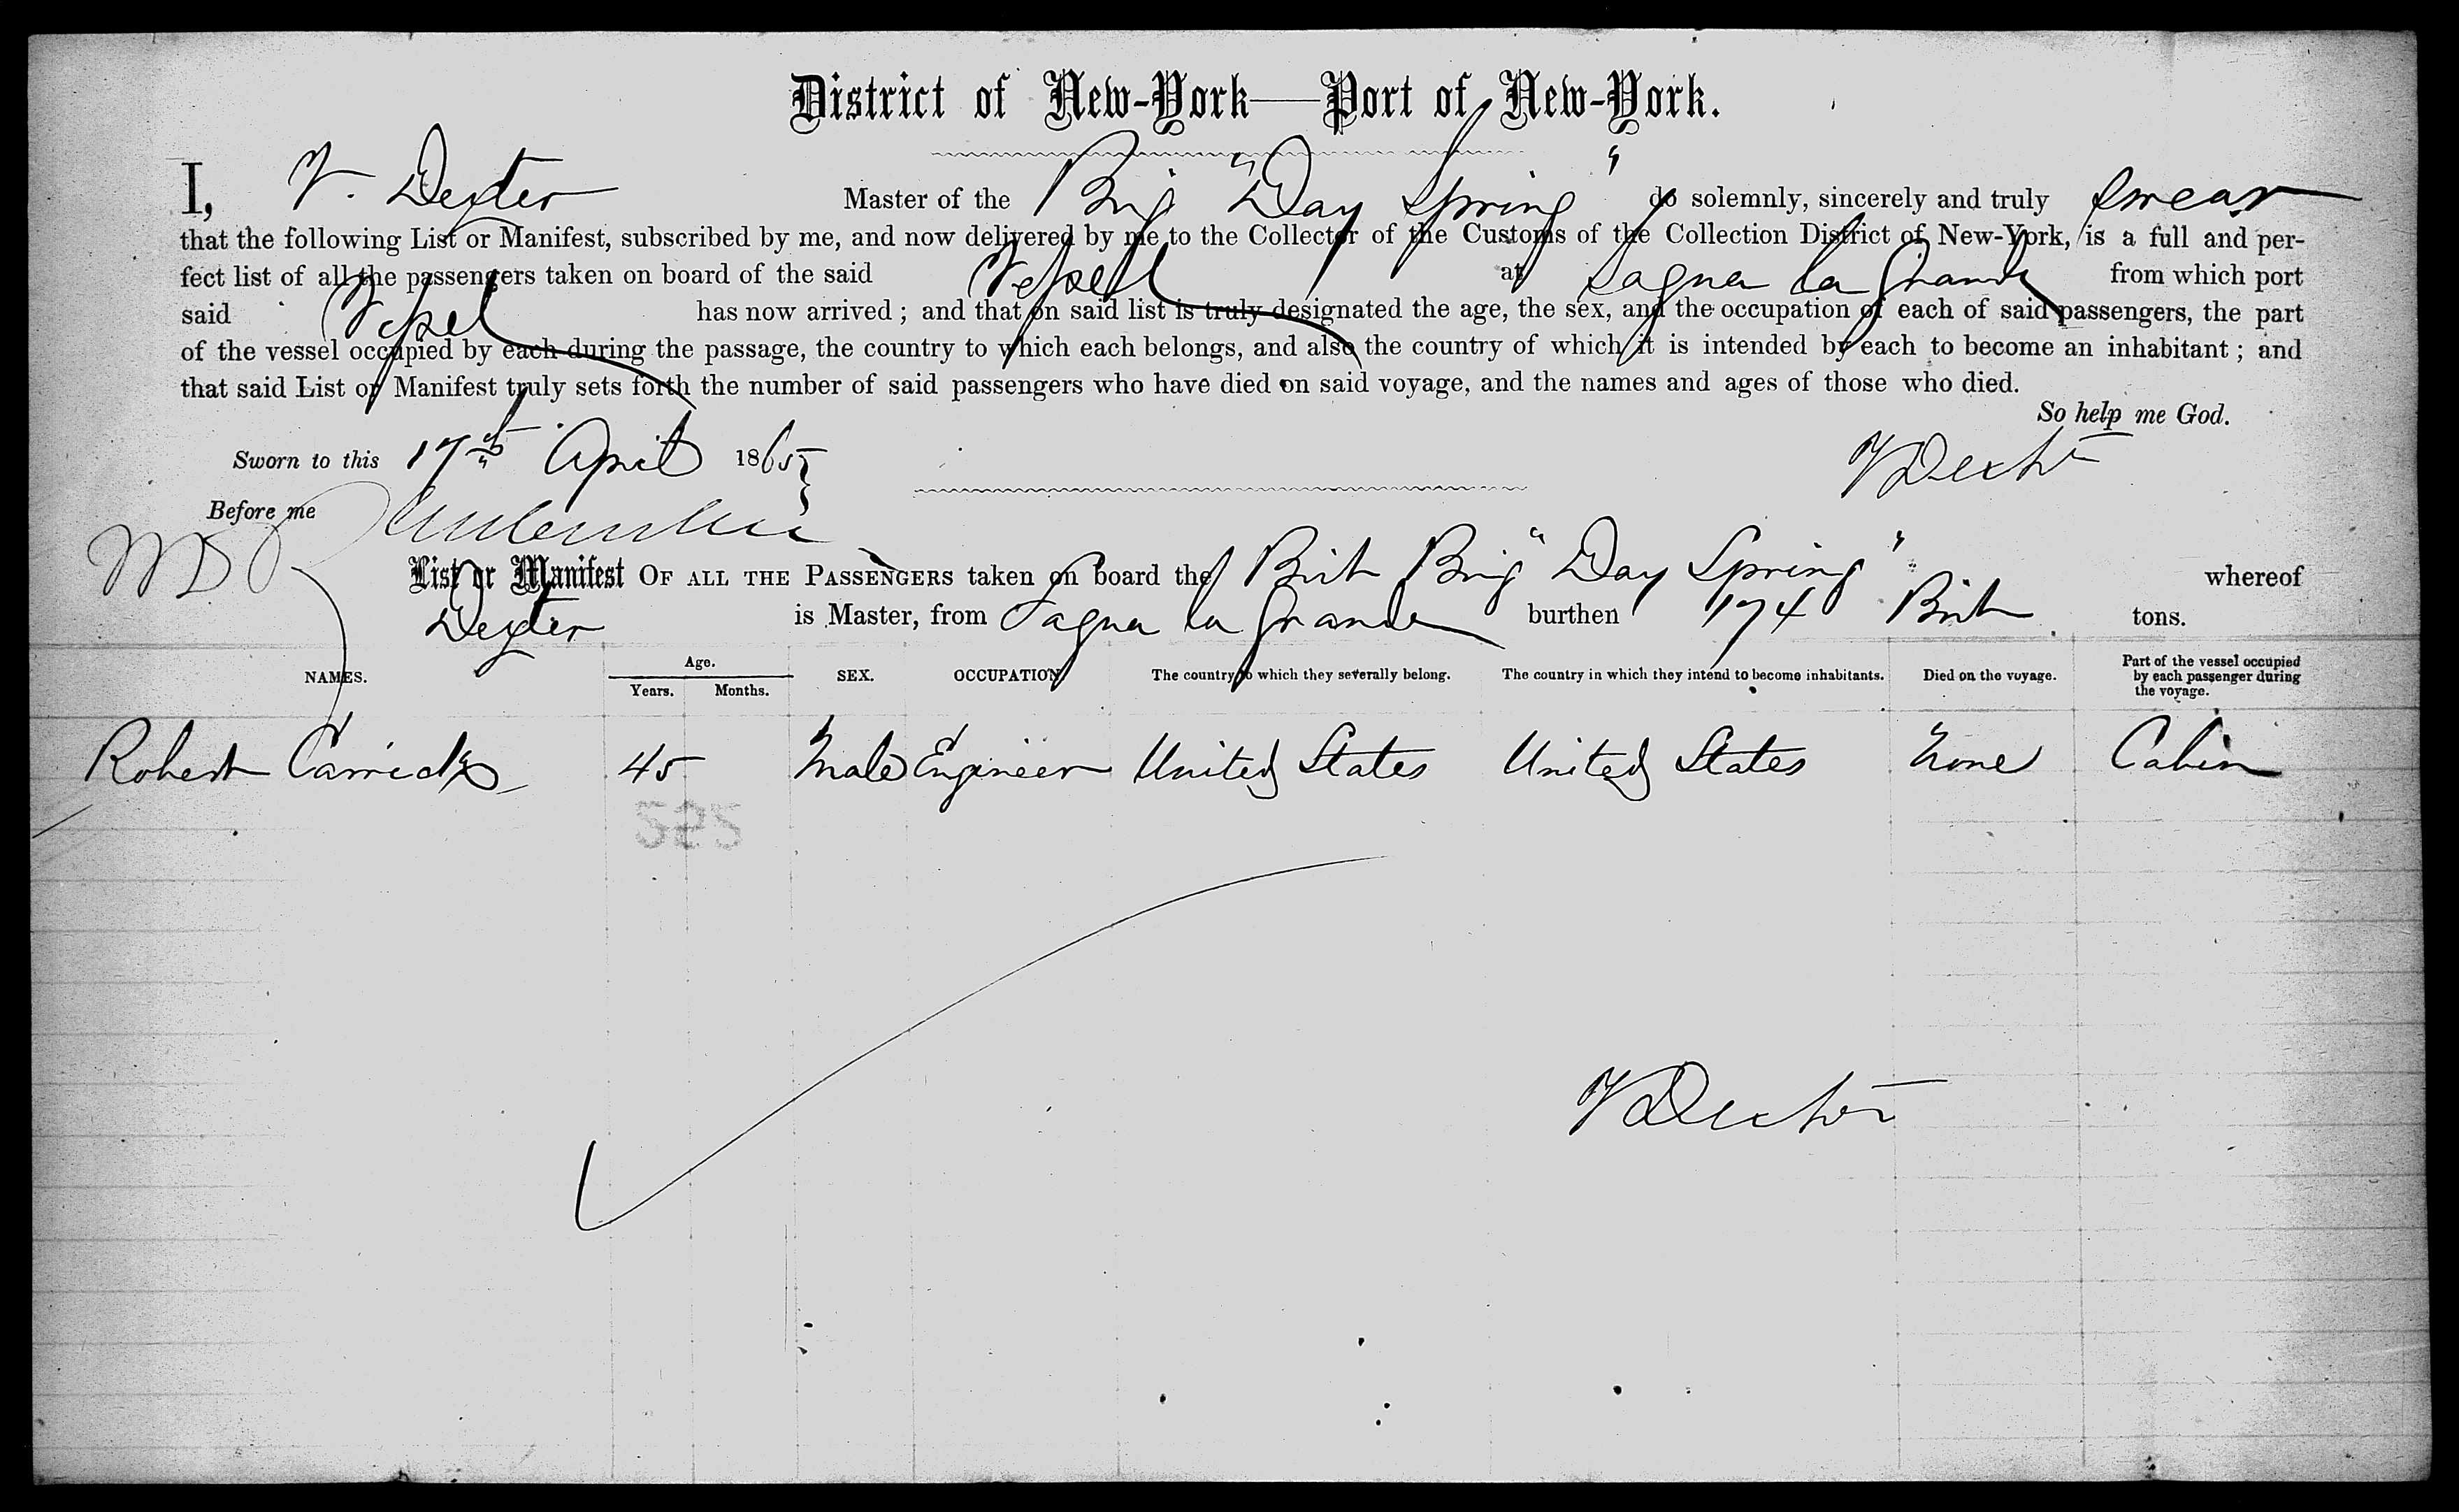 District of New-York—Port of New-York.
I, V. Dexter Master of the Brig "Day Spring" do solemnly, sincerely and truly swear
that the following List or Manifest, subscribed by me, and now delivered by me to the Collector of the Customs of the Collection District of New-York, is a full and per-
fect list of all the passengers taken on board of the said Vessel at Sagua la Grande from which port
said Vessel has now arrived ; and that on said list is truly designated the age, the sex, and the occupation of each of said passengers, the part
of the vessel occupied by each during the passage, the country to which each belongs, and also the country of which it is intended by each to become an inhabitant ; and
that said List or Manifest truly sets forth the number of said passengers who have died on said voyage, and the names and ages of those who died.
So help me God.
Sworn to this 17th April 1865 V Dexter
Before me
List or Manifest OF ALL THE PASSENGERS taken on board the Brit Brig "Day Spring" whereof
Dexter is Master, from Sagua la Grande burthen 174 Brit tons.
NAMES. Age. Years. Months. SEX. OCCUPATION The country to which they severally belong. The country in which they intend to become inhabitants. Died on the voyage. Part of the vessel occupied by each passenger during the voyage.
Robert Carrick 45 Male Engineer United States United States None Cabin
V Dexter